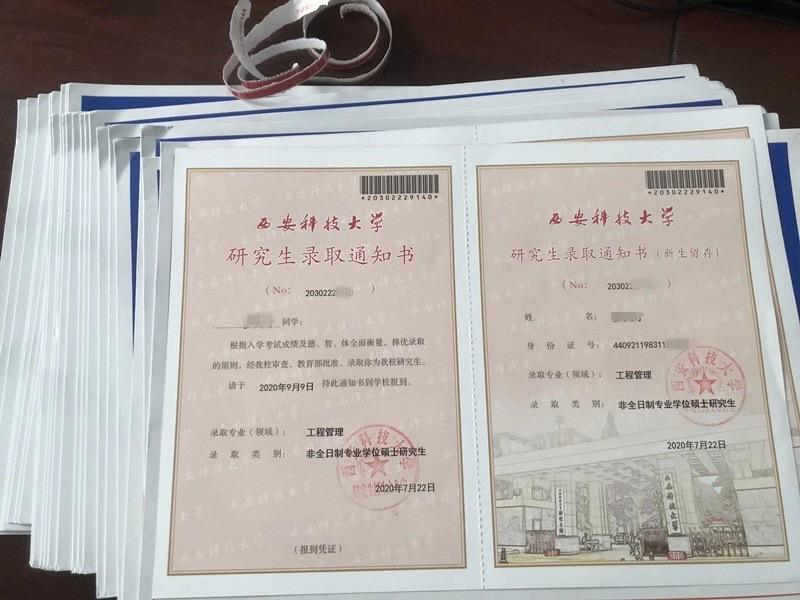 *20302229140*
西安科技大学
研究生录取通知书
(No: 2030222 )
同学:
根据入学考试成绩及德、智、体全面衡量，择优录取
的原则，经我校审查，教育部批准，录取你为我校研究生。
请于 2020年9月9日 持此通知书到学校报到。
录取专业(领域): 工程管理
录取类别: 非全日制专业学位硕士研究生
西安科技大学
2020年7月22日
(报到凭证)
*20302229140*
西安科技大学
研究生录取通知书(新生留存)
(No: 203022 )
姓名:
身份证号: 440921198311
录取专业(领域): 工程管理
录取类别: 非全日制专业学位硕士研究生
西安科技大学
2020年7月22日
西安科技大学